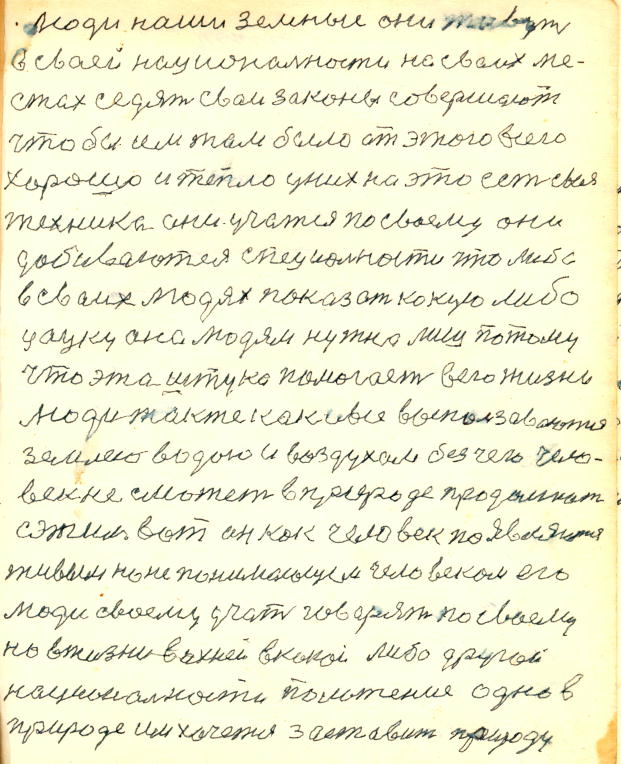 . Люди наши земные они живут
в своей националности на своих ме-
стах седят сваи законы совершают
что бы им там было от этого всего
хорошо и тепло у них на это есть своя
техника они учатся по своему они
добиваются специолности что либо
в сваих людях показат кокую либо
науку она людям нужна потому
что эта штука помогает в его жизни
люди также как и все выползаваются
землею водою и воздухам без чего чело-
век не сможет в природе продолжат
жизн вот он кок человек появляется
живым но не понимающем человеком его
люди своему учат говорят по своему
но в жизни в ихней в кокой либо другой
националности положение одно в
природе им хочется заставит природу